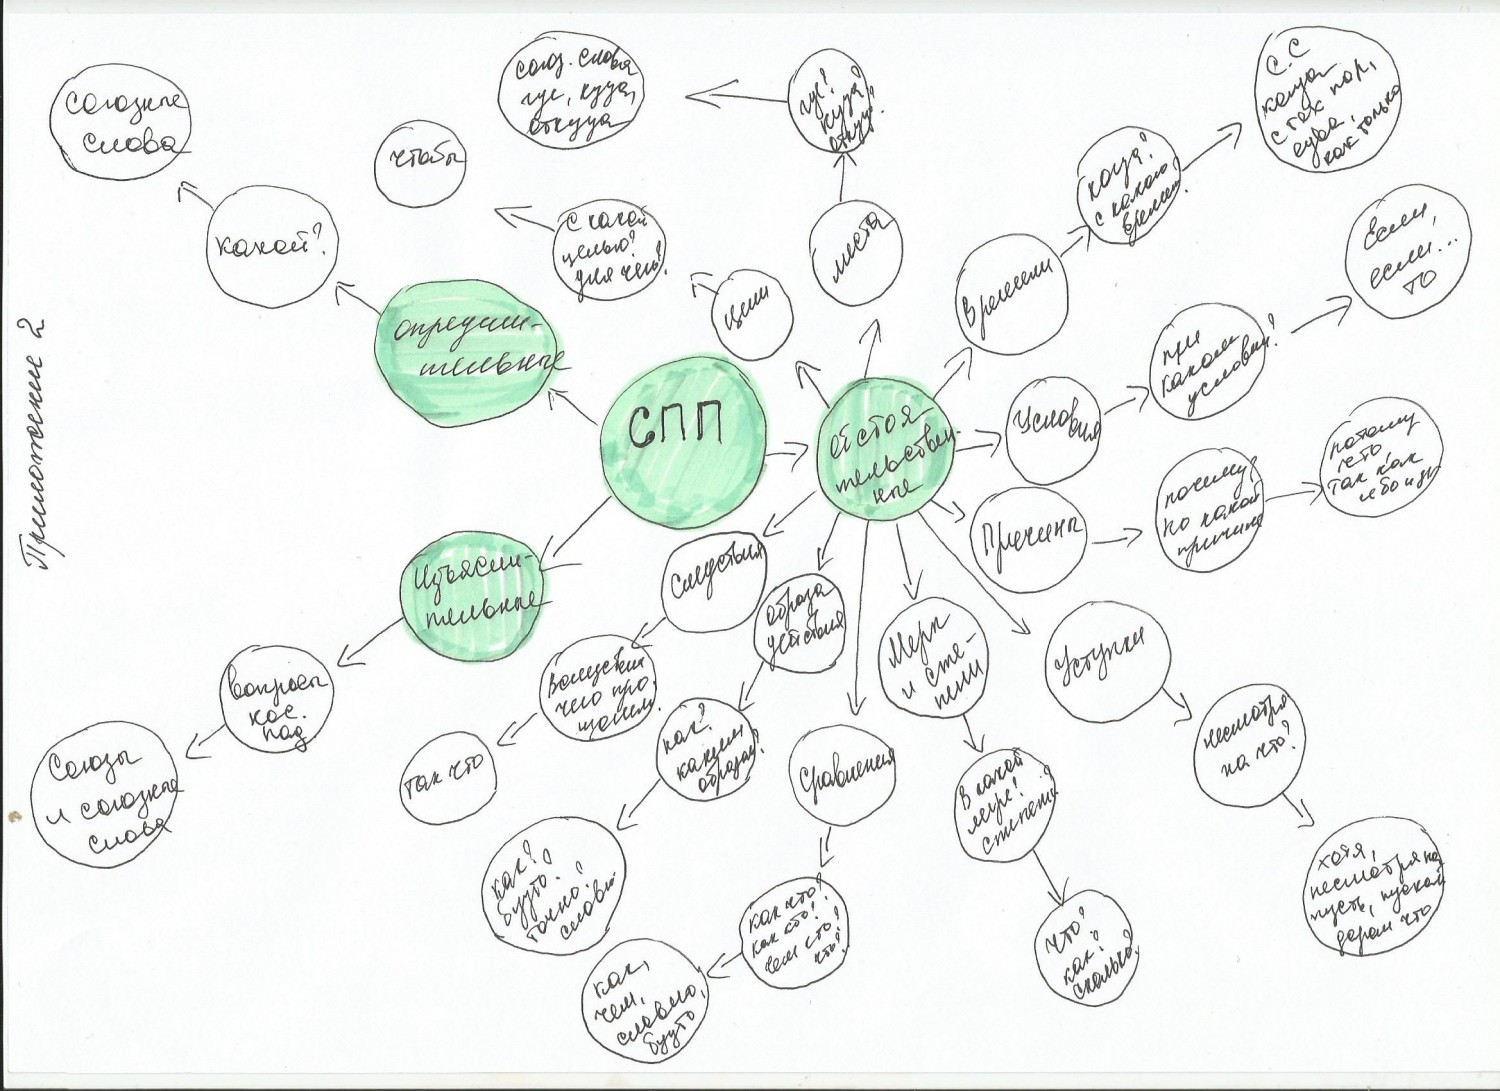 Приложение 2
СПП
определи-
тельные
какой?
союзные
слова
Изъясни-
тельные
вопросы
кос.
пад
Союзы
и союзные
слова
обстоя-
тельствен-
ные
цели
с какой
целью?
для чего?
чтобы
места
где?
куда?
откуда?
союз. слова
где, куда,
откуда
времени
когда?
с какого
времени?
С.С
когда
с тех пор,
едва,
как только
Условия
при
каком
условии?
Если,
если...
то
Причины
почему?
по какой
причине
потому
что,
так как
ибо
Уступки
несмотря
на что?
хотя,
несмотря на
пусть, пускай
даром что
Меры
и сте-
пени
В какой
мере?
степени?
что?
как?
сколько?
Сравнения
как что?
как кто?
чем кто?
что?
как,
чем,
словно,
будто
образа
действия
как?
каким
образом?
как?,
будто?
точно?
словн.
Следствия
Вследствии
чего про-
изошл.
так что